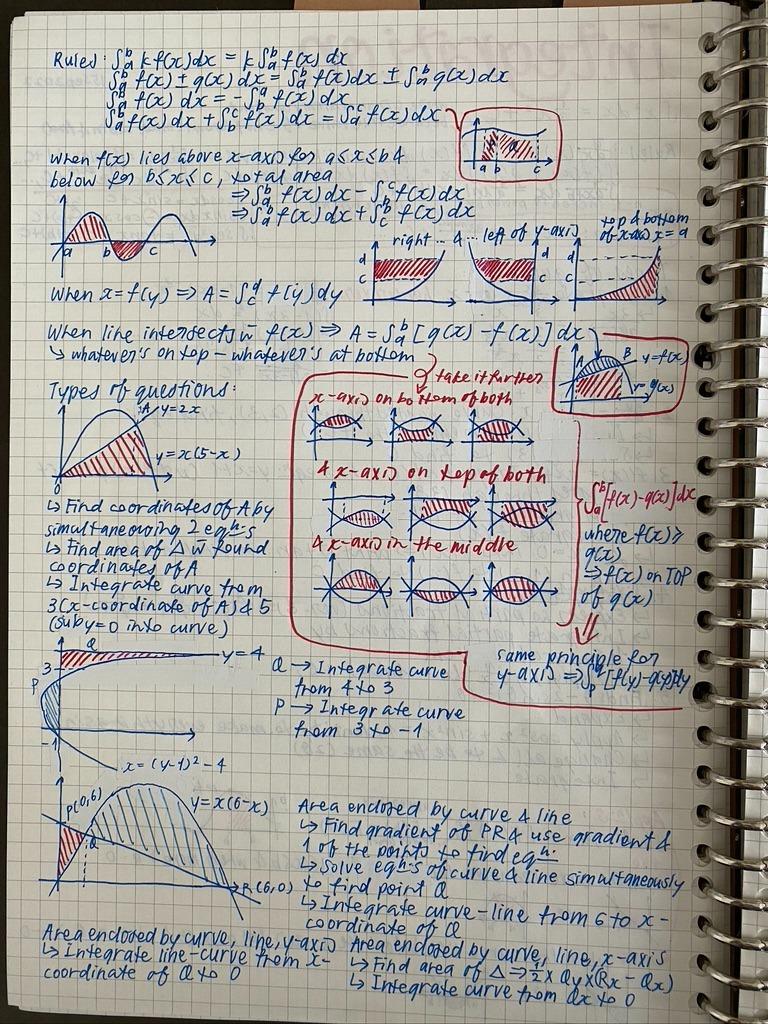 Rules: ∫ₐᵇ k f(x) dx = k ∫ₐᵇ f(x) dx
∫ₐᵇ f(x) ± g(x) dx = ∫ₐᵇ f(x) dx ± ∫ₐᵇ g(x) dx
∫ₐᵇ f(x) dx = -∫_b^a f(x) dx
∫ₐᵇ f(x) dx + ∫_b^c f(x) dx = ∫_a^c f(x) dx
a b c
when f(x) lies above x-axis for a≤x≤b &
below for b≤x≤c, total area
⇒ ∫ₐᵇ f(x) dx - ∫_b^c f(x) dx
⇒ ∫ₐᵇ f(x) dx + ∫_c^b f(x) dx
a b c
right ... & ... left of y-axis
top & bottom
of x-axis x = a
d c
d c
d c
When x = f(y) ⇒ A = ∫_c^d f(y) dy
When line intersects w̄ f(x) ⇒ A = ∫ₐᵇ [g(x) - f(x)] dx
↳ whatever's on top - whatever's at bottom
A B y=f(x)
y=g(x)
take it further
Types of questions:
A y=2x
y=x(5-x)
0
↳ Find coordinates of A by
simultaneowing 2 eqⁿ·s
↳ Find area of Δ w̄ found
coordinates of A
↳ Integrate curve from
3(x-coordinate of A) & 5
(sub y=0 into curve)
x-axis on bottom of both
& x-axis on top of both
& x-axis in the middle
∫ₐᵇ [f(x)-g(x)] dx
where f(x) ≥
g(x)
↳ f(x) on TOP
of g(x)
same principle for
y-axis ⇒ ∫_p^q [f(y)-g(y)] dy
Q
y=4
3
P
-1
x = (y-1)² - 4
Q → Integrate curve
from 4 to 3
P → Integrate curve
from 3 to -1
P(0,6)
y=x(6-x)
Q
R(6,0)
Area enclosed by curve & line
↳ Find gradient of PR & use gradient &
1 of the points to find eqⁿ·
↳ Solve eqⁿ·s of curve & line simultaneously
to find point Q
↳ Integrate curve-line from 6 to x-
coordinate of Q
Area enclosed by curve, line, y-axis
↳ Integrate line-curve from x-
coordinate of Q to 0
Area enclosed by curve, line, x-axis
↳ Find area of Δ ⇒ ½ × Qy × (Rx - Qx)
↳ Integrate curve from Qx to 0